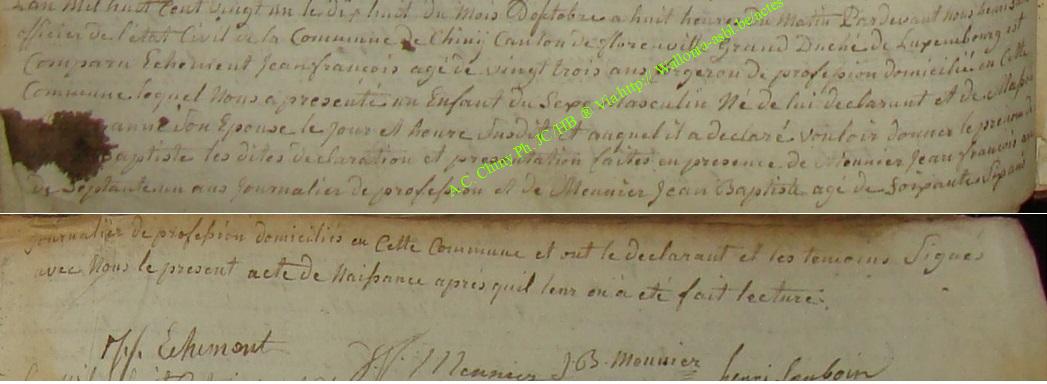 Lan Mil huit Cent vingt un le dix huit du Mois Doctobre a huit heures du Matin Pardevant nous henri
officier de l'état Civil de la Commune de Chiny Canton de florenville Grand Duché de Luxembourg est
Comparu Echement Jean françois agé de vingt trois ans forgeron de profession domicilié en Cette
Commune lequel Nous a presenté un Enfant du Sexe Masculin Né de lui declarant et de
anne Son Epouse le jour et heure Susdit et auquel il a declaré vouloir donner le prenom
Baptiste les dites declaration et presentation faites en presence de Meunier Jean françois
de Septante un ans Journalier de profession et de Meunier Jean Baptiste agé de Soixante Six ans
A.C. Chiny Ph. JC /HB @ Via http:// Wallonia-asbl.be/actes
Journalier de profession domiciliés en Cette Commune et ont le declarant et les temoins Signés
avec Nous le present acte de Naissance après quil leur en a eté fait lecture.
Echement
Meunier J.B. Meunier henri